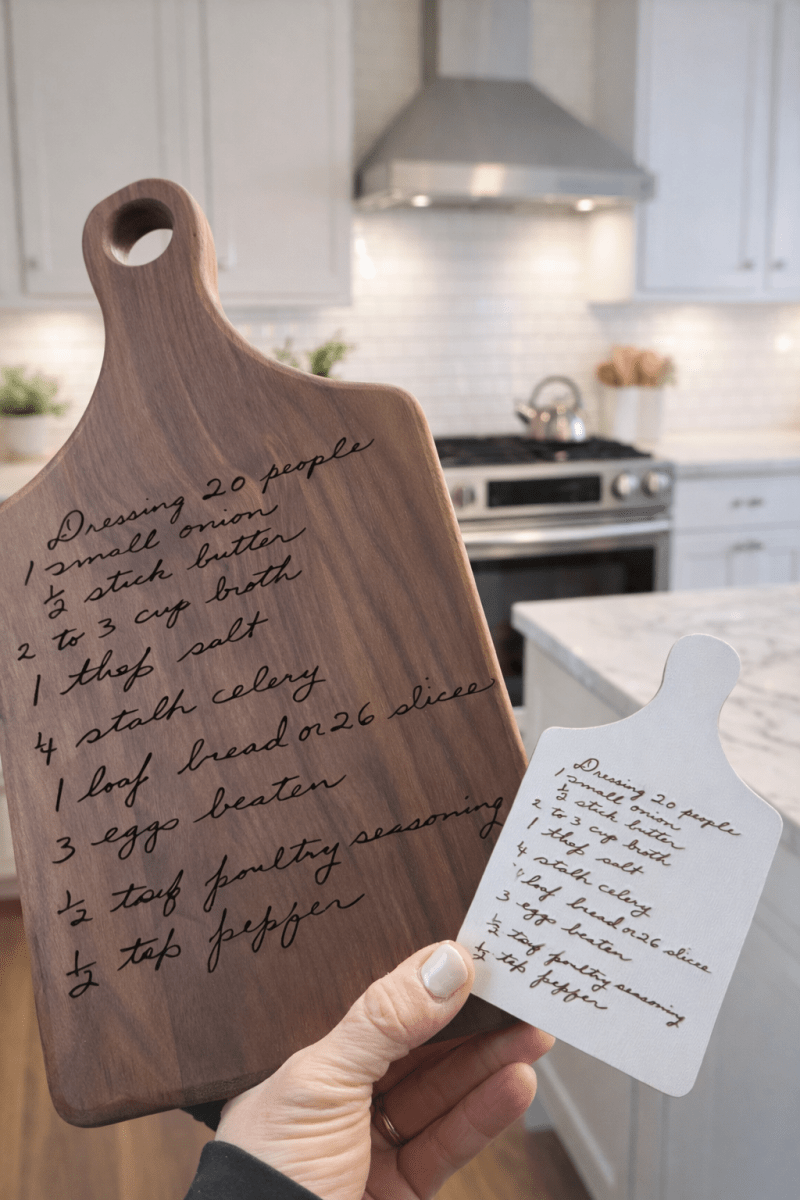 Dressing 20 people
1 small onion
½ stick butter
2 to 3 cup broth
1 thsp salt
4 stalk celery
1 loaf bread or 26 slices
3 eggs beaten
½ tsp poultry seasoning
½ tsp pepper
Dressing 20 people
1 small onion
½ stick butter
2 to 3 cup broth
1 thsp salt
4 stalk celery
loaf bread or 26 slices
3 eggs beaten
½ tsp poultry seasoning
½ tsp pepper